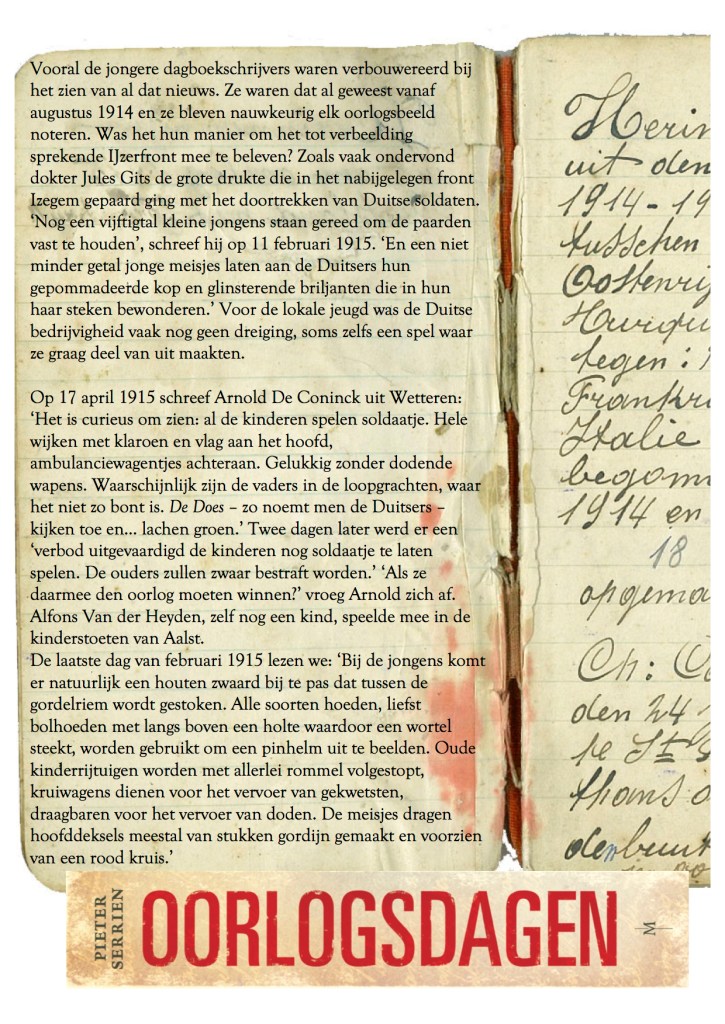 Vooral de jongere dagboekschrijvers waren verbouwereerd bij
het zien van al dat nieuws. Ze waren dat al geweest vanaf
augustus 1914 en ze bleven nauwkeurig elk oorlogsbeeld
noteren. Was het hun manier om het tot verbeelding
sprekende IJzerfront mee te beleven? Zoals vaak ondervond
dokter Jules Gits de grote drukte die in het nabijgelegen front
Izegem gepaard ging met het doortrekken van Duitse soldaten.
‘Nog een vijftigtal kleine jongens staan gereed om de paarden
vast te houden’, schreef hij op 11 februari 1915. ‘En een niet
minder getal jonge meisjes laten aan de Duitsers hun
gepommadeerde kop en glinsterende briljanten die in hun
haar steken bewonderen.’ Voor de lokale jeugd was de Duitse
bedrijvigheid vaak nog geen dreiging, soms zelfs een spel waar
ze graag deel van uit maakten.
Op 17 april 1915 schreef Arnold De Coninck uit Wetteren:
‘Het is curieus om zien: al de kinderen spelen soldaatje. Hele
wijken met klaroen en vlag aan het hoofd,
ambulanciewagentjes achteraan. Gelukkig zonder dodende
wapens. Waarschijnlijk zijn de vaders in de loopgrachten, waar
het niet zo bont is. De Does – zo noemt men de Duitsers –
kijken toe en... lachen groen.’ Twee dagen later werd er een
‘verbod uitgevaardigd de kinderen nog soldaatje te laten
spelen. De ouders zullen zwaar bestraft worden.’ ‘Als ze
daarmee den oorlog moeten winnen?’ vroeg Arnold zich af.
Alfons Van der Heyden, zelf nog een kind, speelde mee in de
kinderstoeten van Aalst.
De laatste dag van februari 1915 lezen we: ‘Bij de jongens komt
er natuurlijk een houten zwaard bij te pas dat tussen de
gordelriem wordt gestoken. Alle soorten hoeden, liefst
bolhoeden met langs boven een holte waardoor een wortel
steekt, worden gebruikt om een pinhelm uit te beelden. Oude
kinderrijtuigen worden met allerlei rommel volgestopt,
kruiwagens dienen voor het vervoer van gekwetsten,
draagbaren voor het vervoer van doden. De meisjes dragen
hoofddeksels meestal van stukken gordijn gemaakt en voorzien
van een rood kruis.’
uit den
1914-19
tusschen
tegen:
Italie
1914 en
18
Ch:
den 24
te St
thans
PIETER
SERRIEN
OORLOGSDAGEN
M